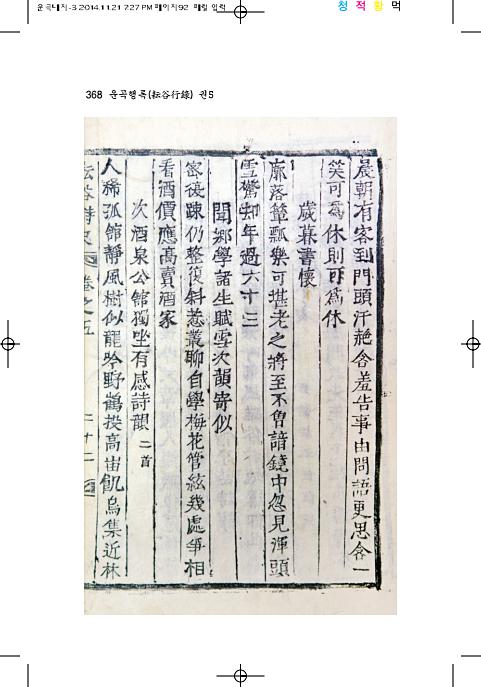 운곡내지-3 2014.11.21 7:27 PM 페이지92 매킬 입력
청 적 황 먹
368 운곡행록(耘谷行錄) 권5
晨朝有客到門頭汗赩含羞告事由問語更思含一
笑可為休則可為休
歲暮書懷
廓落簞瓢樂可堪老之將至不曾諳鏡中忽見渾頭
雪驚知年過六十三
聞鄉學諸生賦雪次韻寄似
密復踈仍整復斜惹叢聊自學梅花管絃幾處爭相
看酒價應高賣酒家
次酒泉公館獨坐有感詩韻 二首
人稀孤館靜風樹似龍吟野鶴投高峀飢烏集近林
卷之五 二十二